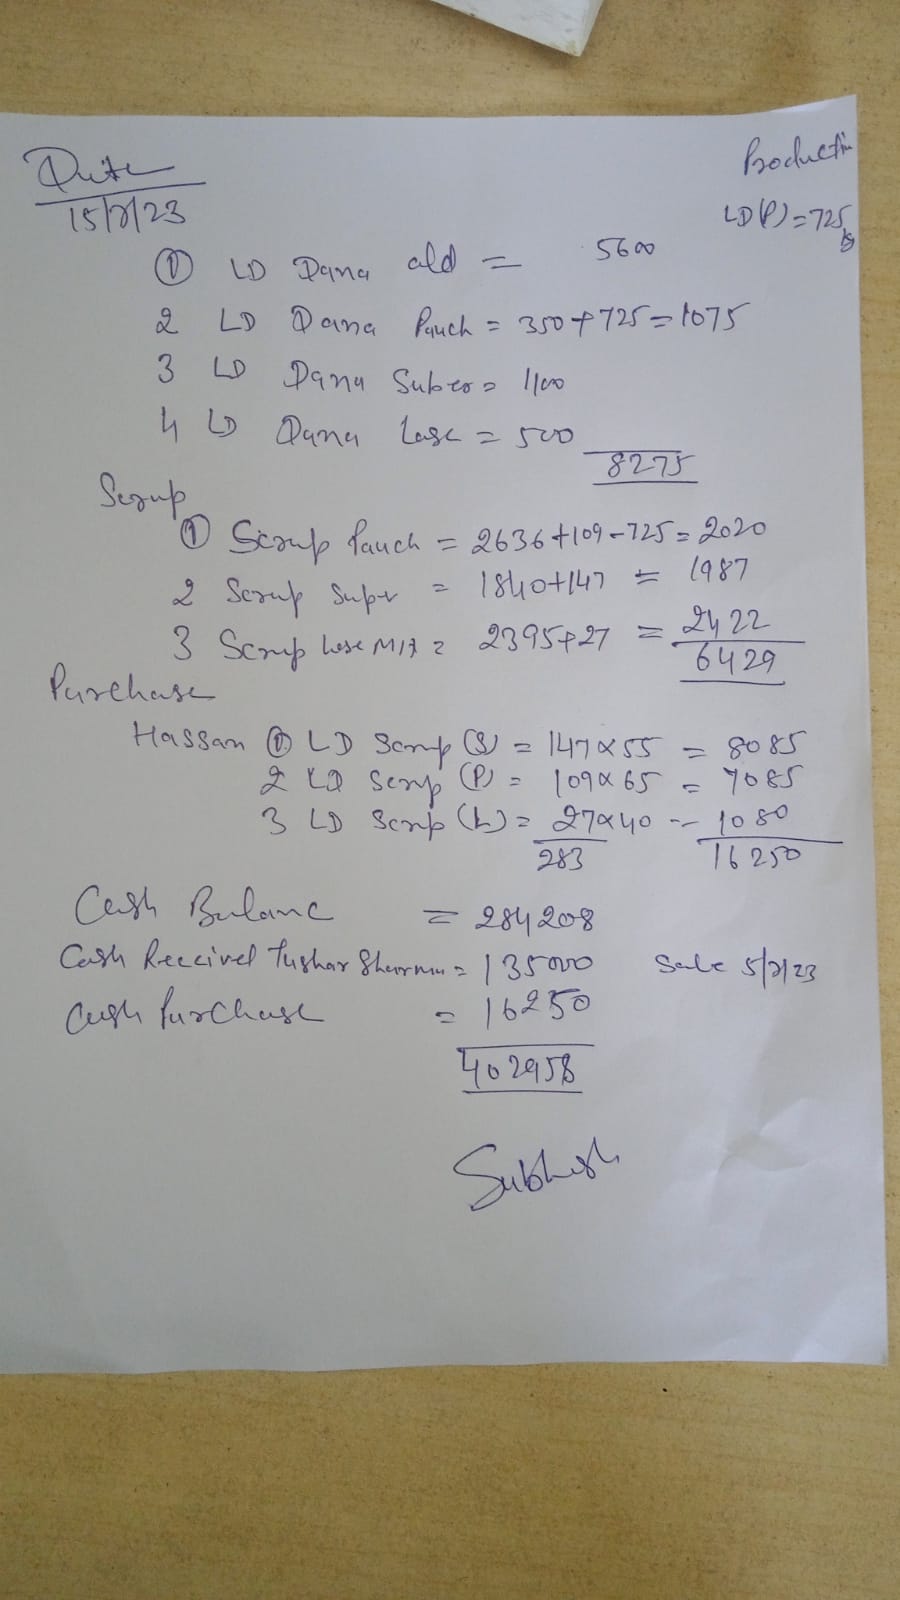 Date
15/7/23
Production
LD(P)=725 kg
① LD Dana old = 5600
2 LD Dana Pauch = 350+725=1075
3 LD Dana Suber = 1100
4 LD Dana Lose = 500
8275
Scrup
① Scrup Pauch = 2636+109-725=2020
2 Scrup Super = 1840+147 = 1987
3 Scrup Lose Mix = 2395+27 = 2422
6429
Purchase
Hassan ① LD Scrup (S) = 147x55 = 8085
2 LD Scrup (P) = 109x65 = 7085
3 LD Scrup (L) = 27x40 = 1080
283 16250
Cash Balanc = 284208
Cash Received Tushar Sharma = 135000 Sale 5/7/23
Cash Purchase = 16250
402958
Subhash